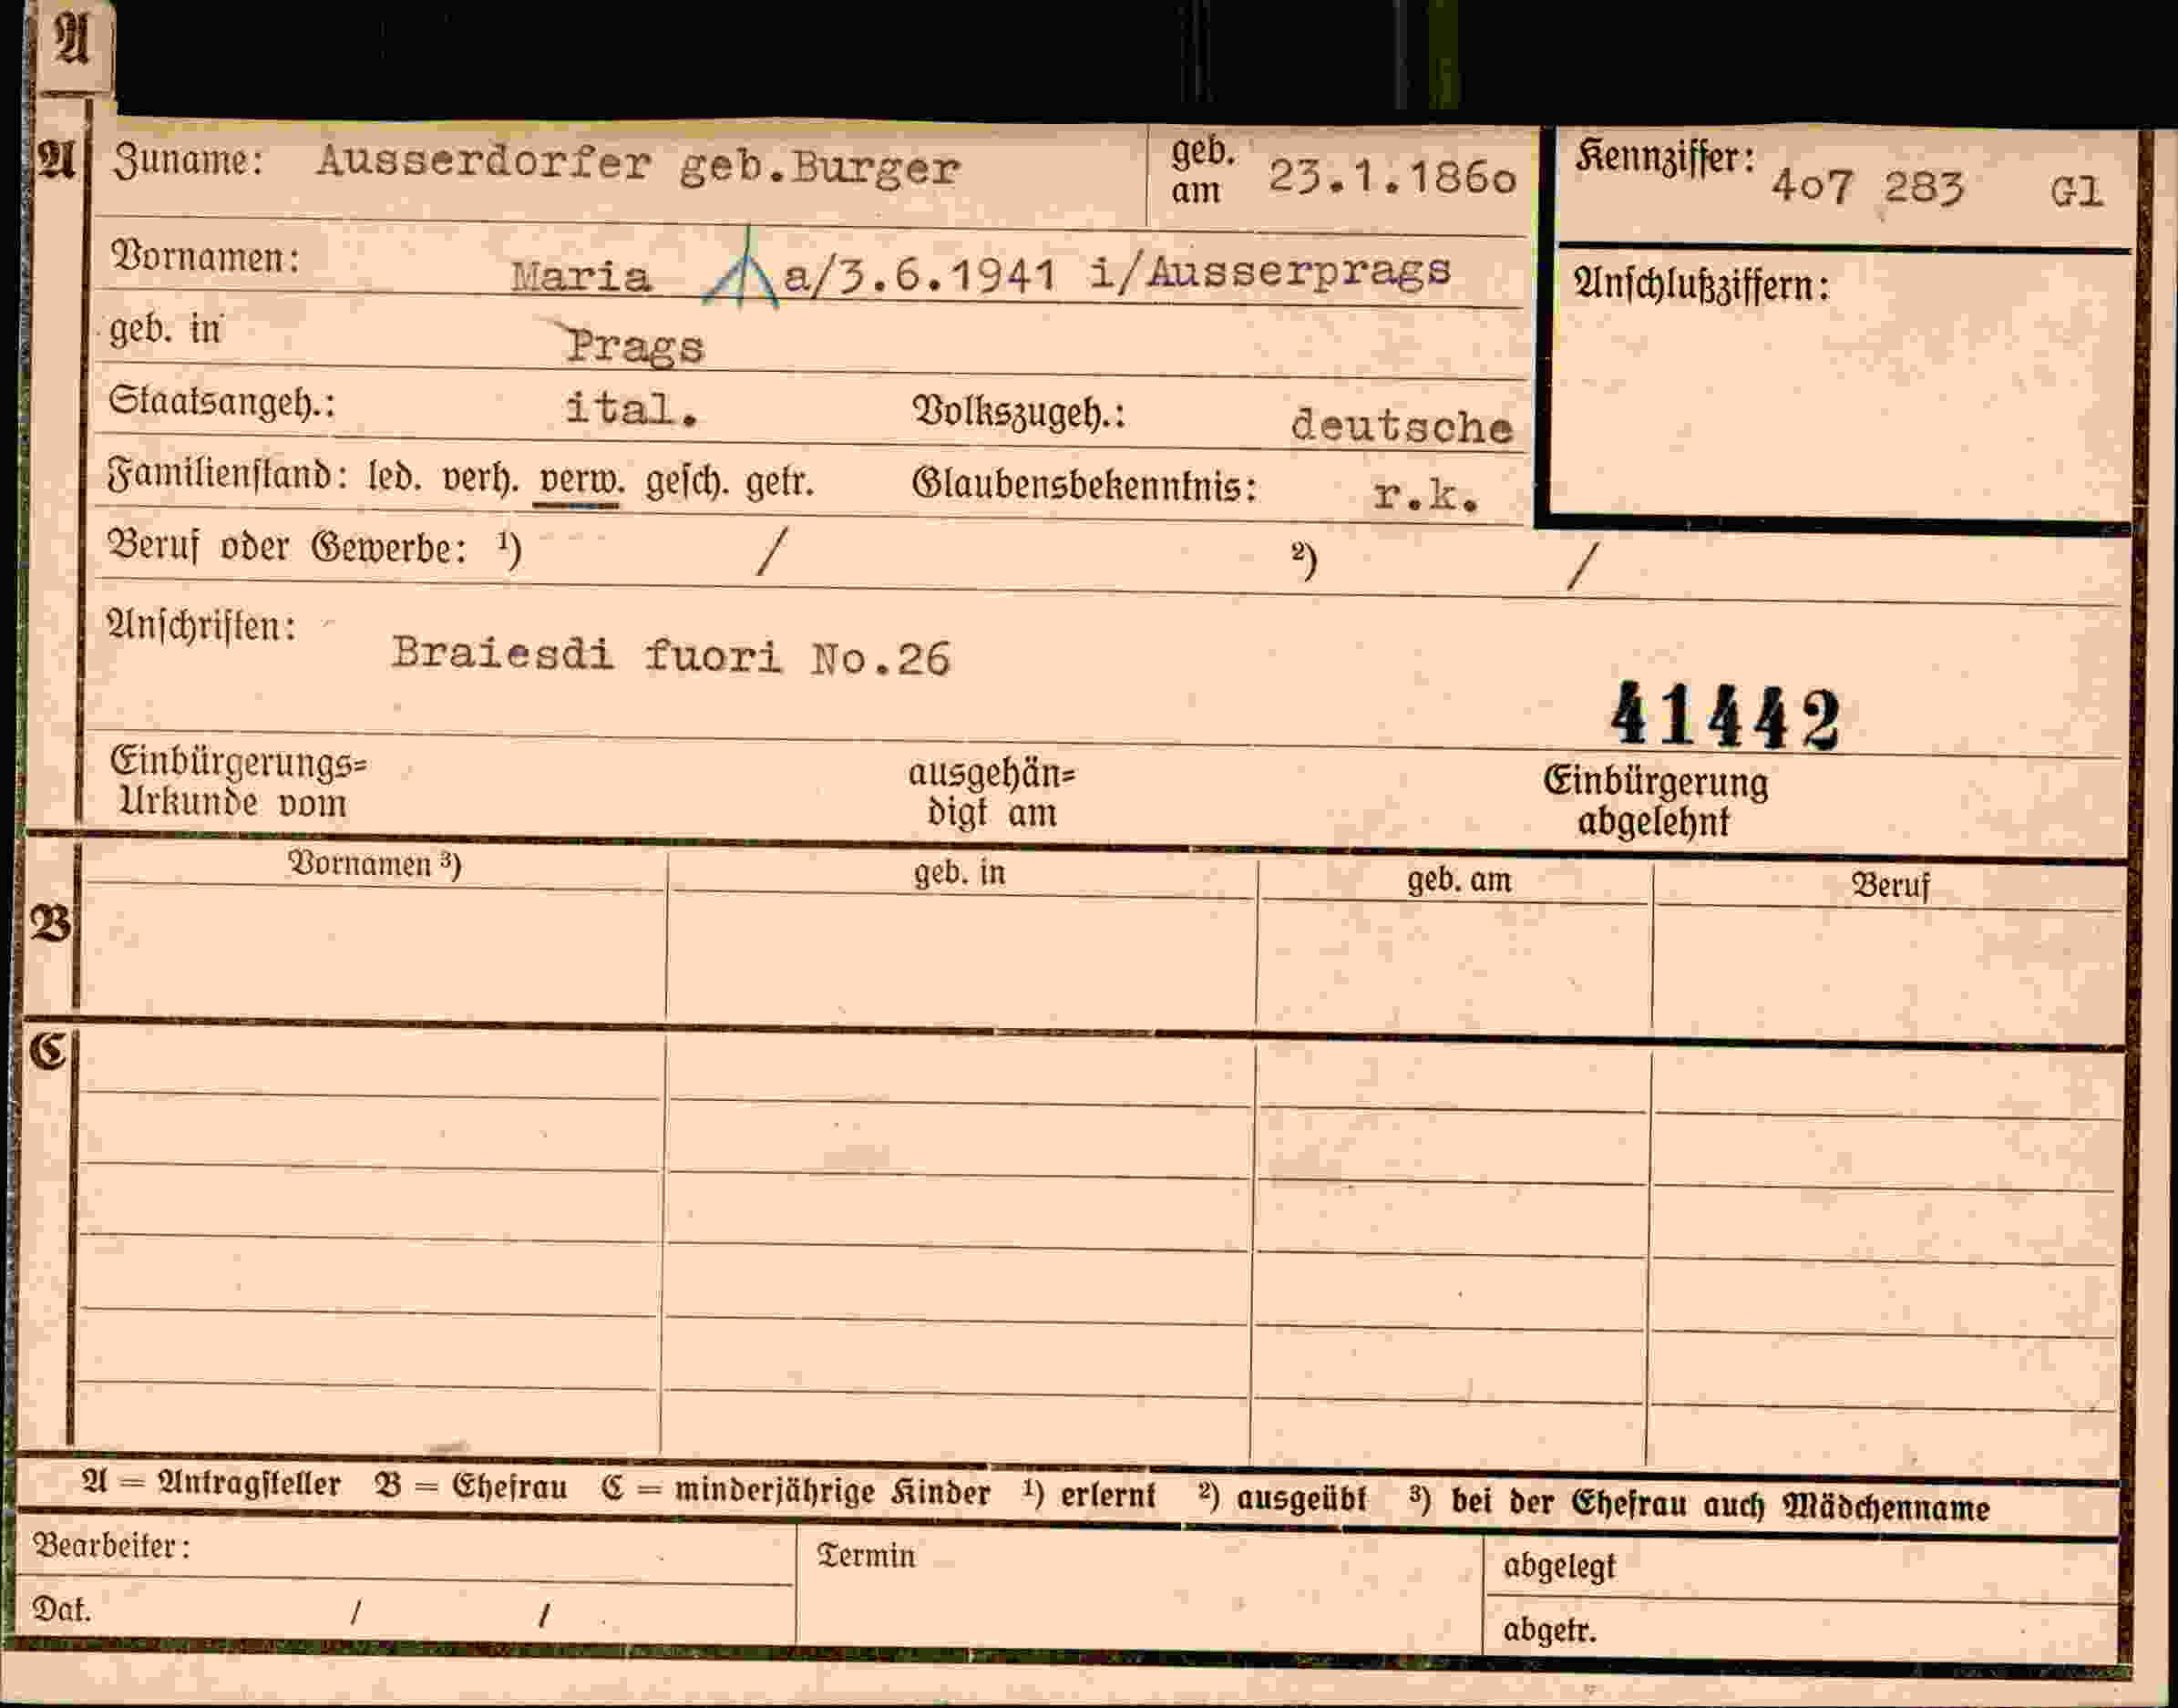 A
A Zuname: Ausserdorfer geb.Burger geb. am 23.1.186o Kennziffer: 4o7 283 Gl
Vornamen: Maria a/3.6.1941 i/Ausserprags Anschlußziffern:
geb. in Prags
Staatsangeh.: ital. Volkszugeh.: deutsche
Familienstand: led. verh. verw. gesch. getr. Glaubensbekenntnis: r.k.
Beruf oder Gewerbe: ¹) / ²) /
Anschriften: Braiesdi fuori No.26
41442
Einbürgerungs= ausgehän= Einbürgerung
Urkunde vom digt am abgelehnt
Vornamen ³) geb. in geb. am Beruf
B
C
A = Antragsteller B = Ehefrau C = minderjährige Kinder ¹) erlernt ²) ausgeübt ³) bei der Ehefrau auch Mädchenname
Bearbeiter: Termin abgelegt
Dat. / / abgetr.